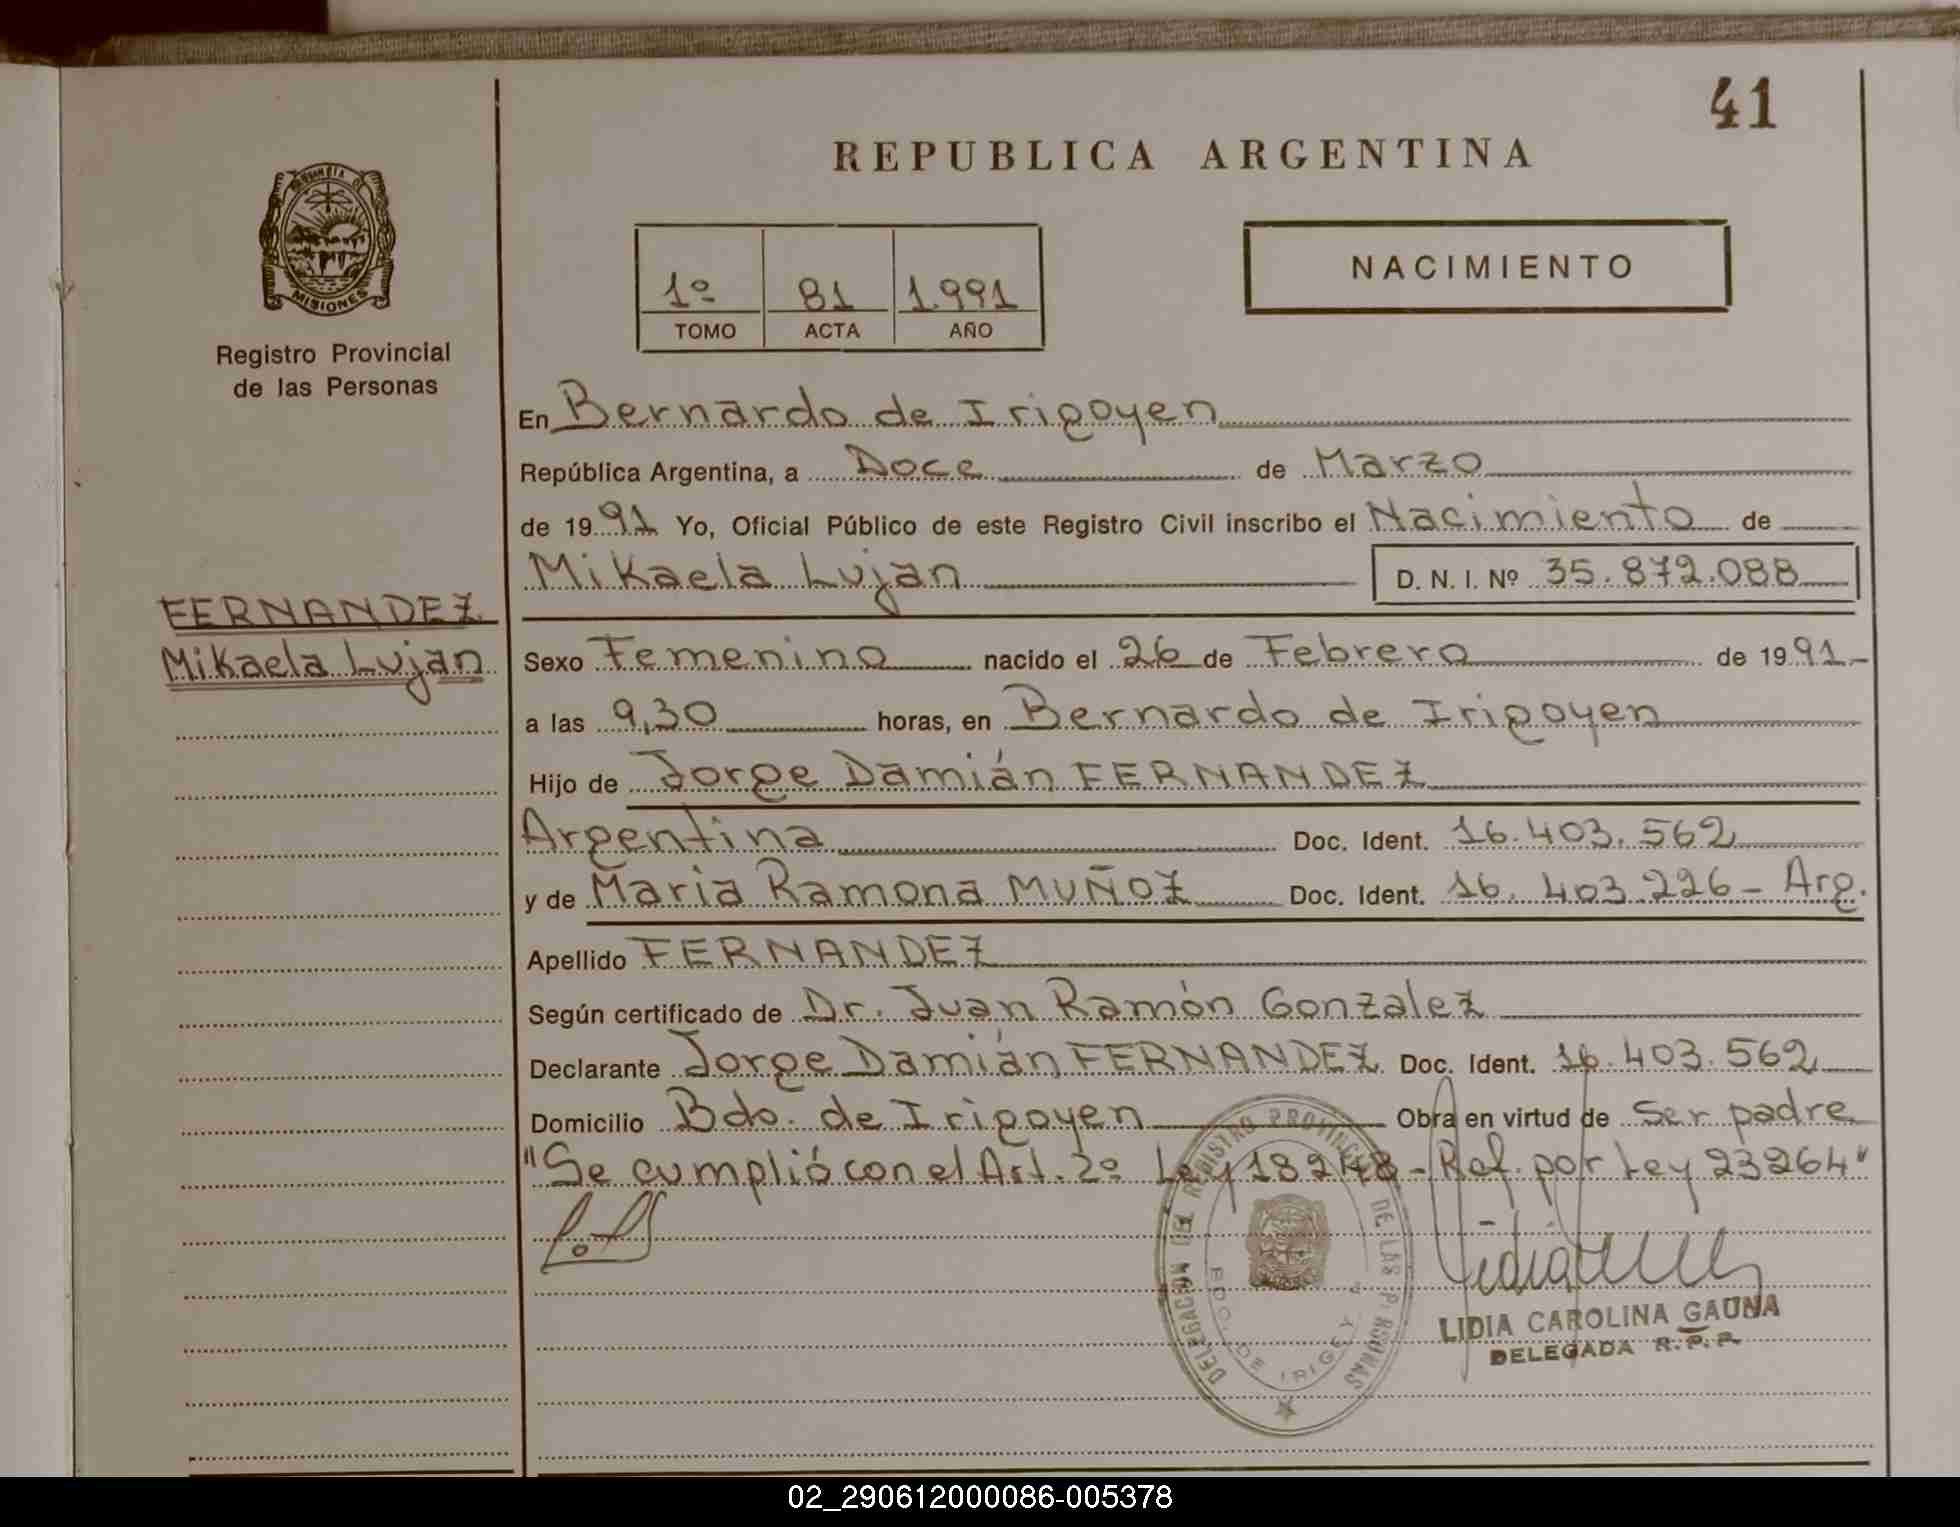 41
REPUBLICA ARGENTINA
PROVINCIA DE
MISIONES
Registro Provincial
de las Personas
NACIMIENTO
1º 81 1.991
TOMO ACTA AÑO
En Bernardo de Irigoyen
República Argentina, a Doce de Marzo
de 1991 Yo, Oficial Público de este Registro Civil inscribo el Nacimiento de
Mikaela Lujan D. N. I. Nº 35.872.088
FERNANDEZ
Mikaela Lujan
Sexo Femenino nacido el 26 de Febrero de 1991
a las 9,30 horas, en Bernardo de Irigoyen
Hijo de Jorge Damián FERNANDEZ
Argentina Doc. Ident. 16.403.562
y de Maria Ramona MUÑOZ Doc. Ident. 16.403.226 - Arg.
Apellido FERNANDEZ
Según certificado de Dr. Juan Ramón Gonzalez
Declarante Jorge Damián FERNANDEZ Doc. Ident. 16.403.562
Domicilio Bdo. de Irigoyen Obra en virtud de Ser padre
"Se cumplió con el Art. 2º Ley 18248 - Ref. por Ley 23264"
DELEGACION DEL REGISTRO PROVINCIAL DE LAS PERSONAS
BDO. DE IRIGOYEN
LIDIA CAROLINA GAUNA
DELEGADA R.P.P.
02_290612000086-005378